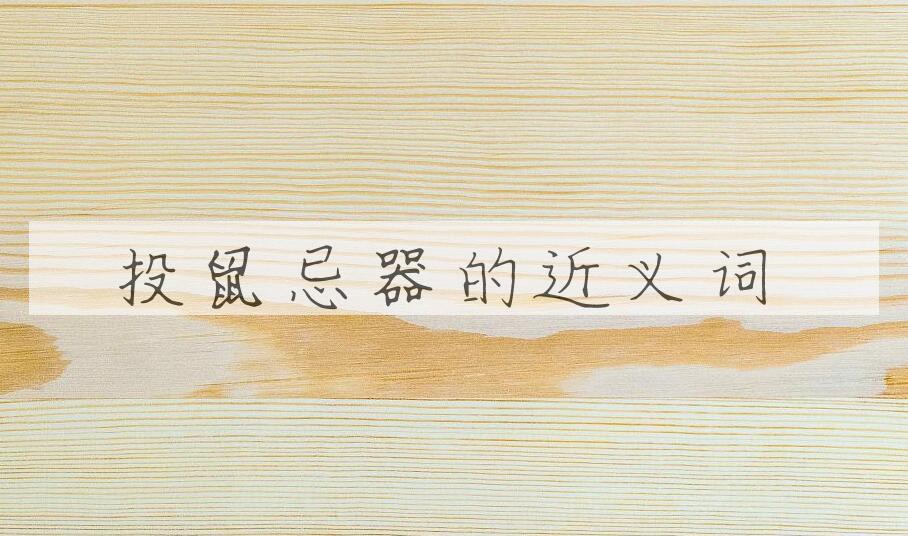 投鼠忌器的近义词